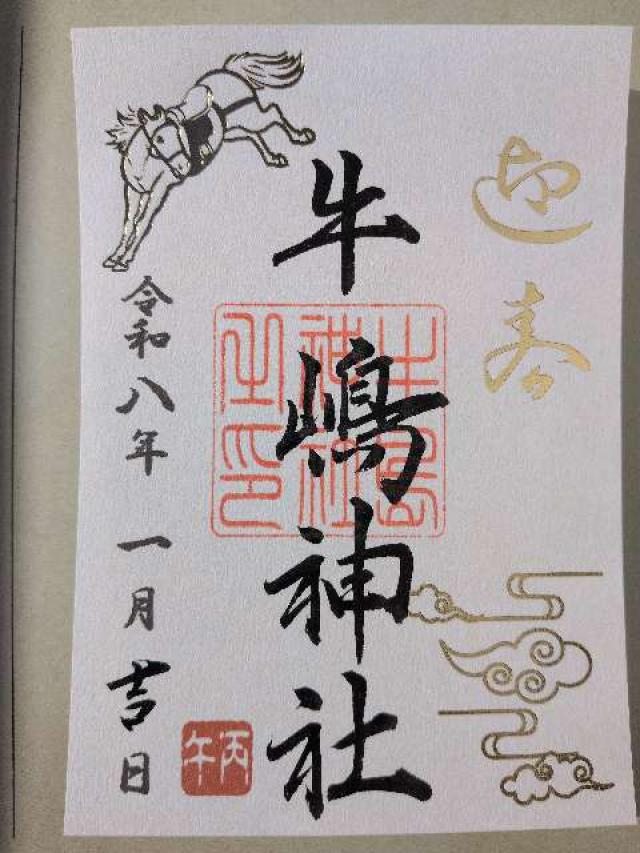 迎壽
牛嶋神社
牛島神社之印
令和八年 一月吉日
丙午